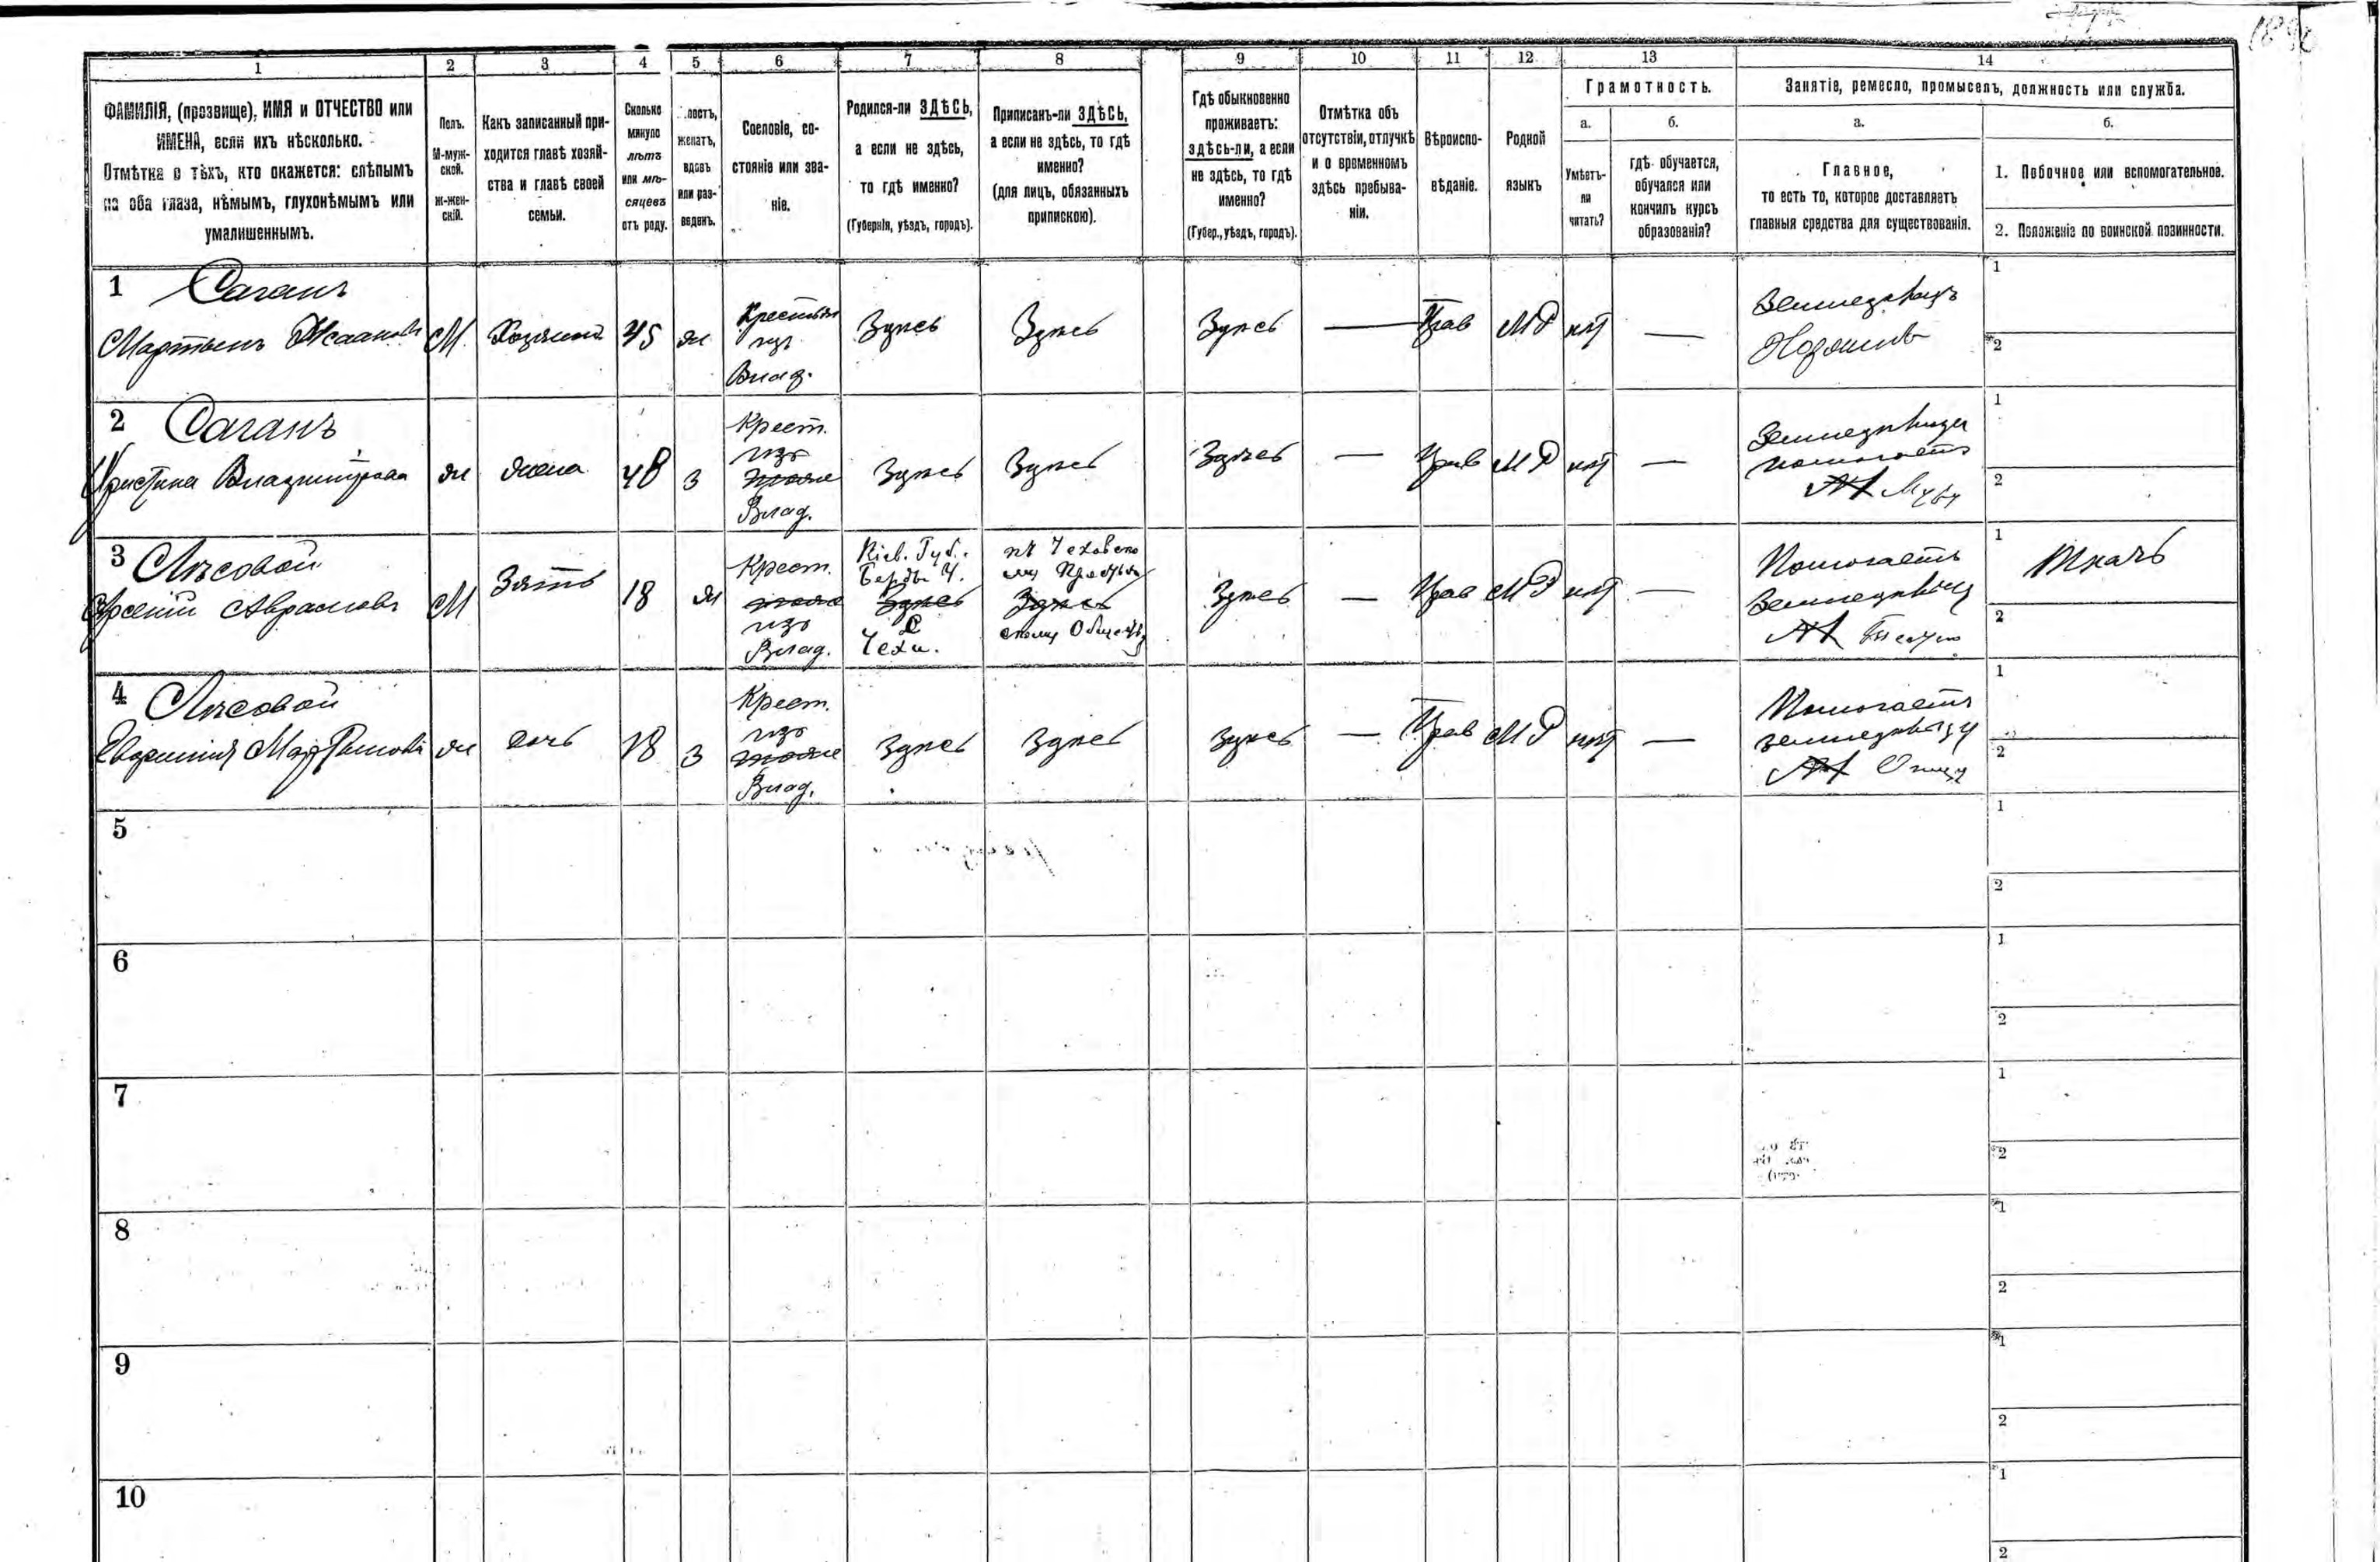 1 2 3 4 5 6 7 8 9 10 11 12 13 14
ФАМИЛІЯ, (прозвище), ИМЯ и ОТЧЕСТВО или
ИМЕНА, если ихъ нѣсколько.
Отмѣтка о тѣхъ, кто окажется: слѣпымъ
на оба глаза, нѣмымъ, глухонѣмымъ или
умалишеннымъ.
Полъ.
М-муж-
ской.
Ж-жен-
скій.
Какъ записанный при-
ходится главѣ хозяй-
ства и главѣ своей
семьи.
Сколько
минуло
лѣтъ
или мѣ-
сяцевъ
отъ роду.
лостъ,
женатъ,
вдовъ
или раз-
веденъ.
Сословіе, со-
стояніе или зва-
ніе.
Родился-ли ЗДѢСЬ,
а если не здѣсь,
то гдѣ именно?
(Губернія, уѣздъ, городъ).
Приписанъ-ли ЗДѢСЬ,
а если не здѣсь, то гдѣ
именно?
(для лицъ, обязанныхъ
припискою).
Гдѣ обыкновенно
проживаетъ:
здѣсь-ли, а если
не здѣсь, то гдѣ
именно?
(Губер., уѣздъ, городъ).
Отмѣтка объ
отсутствіи, отлучкѣ
и о временномъ
здѣсь пребыва-
ніи.
Вѣроиспо-
вѣданіе.
Родной
языкъ
Грамотность.
а.
Умѣетъ-
ли
читать?
б.
гдѣ обучается,
обучался или
кончилъ курсъ
образованія?
Занятіе, ремесло, промыселъ, должность или служба.
а.
Главное,
то есть то, которое доставляетъ
главныя средства для существованія.
б.
1. Побочное или вспомогательное.
2. Положеніе по воинской повинности.
1 Саганъ
Мартынъ М Хозяинъ 45 ж Крестьян изъ Влад. Здѣсь Здѣсь Здѣсь — Прав МР нѣт — Земледѣлецъ 1 2
2 Саганъ
Христина ж жена 48 з Крест. изъ Влад. Здѣсь Здѣсь Здѣсь — Прав МР нѣт — помогаетъ Мужу 1 2
3 Лѣсовой
Арсеній Аврамовъ М Зять 18 ж Крест. изъ Влад. Кіев. Губ. Берд. У. Здѣсь Здѣсь Здѣсь — Прав МР нѣт — Помогаетъ 1 Ткачъ 2
4 Лѣсовой
ж дочь 18 з Крест. изъ Влад. Здѣсь Здѣсь Здѣсь — Прав МР нѣт — Помогаетъ Отцу 1 2
5 1 2
6 1 2
7 1 2
8 1 2
9 1 2
10 1 2